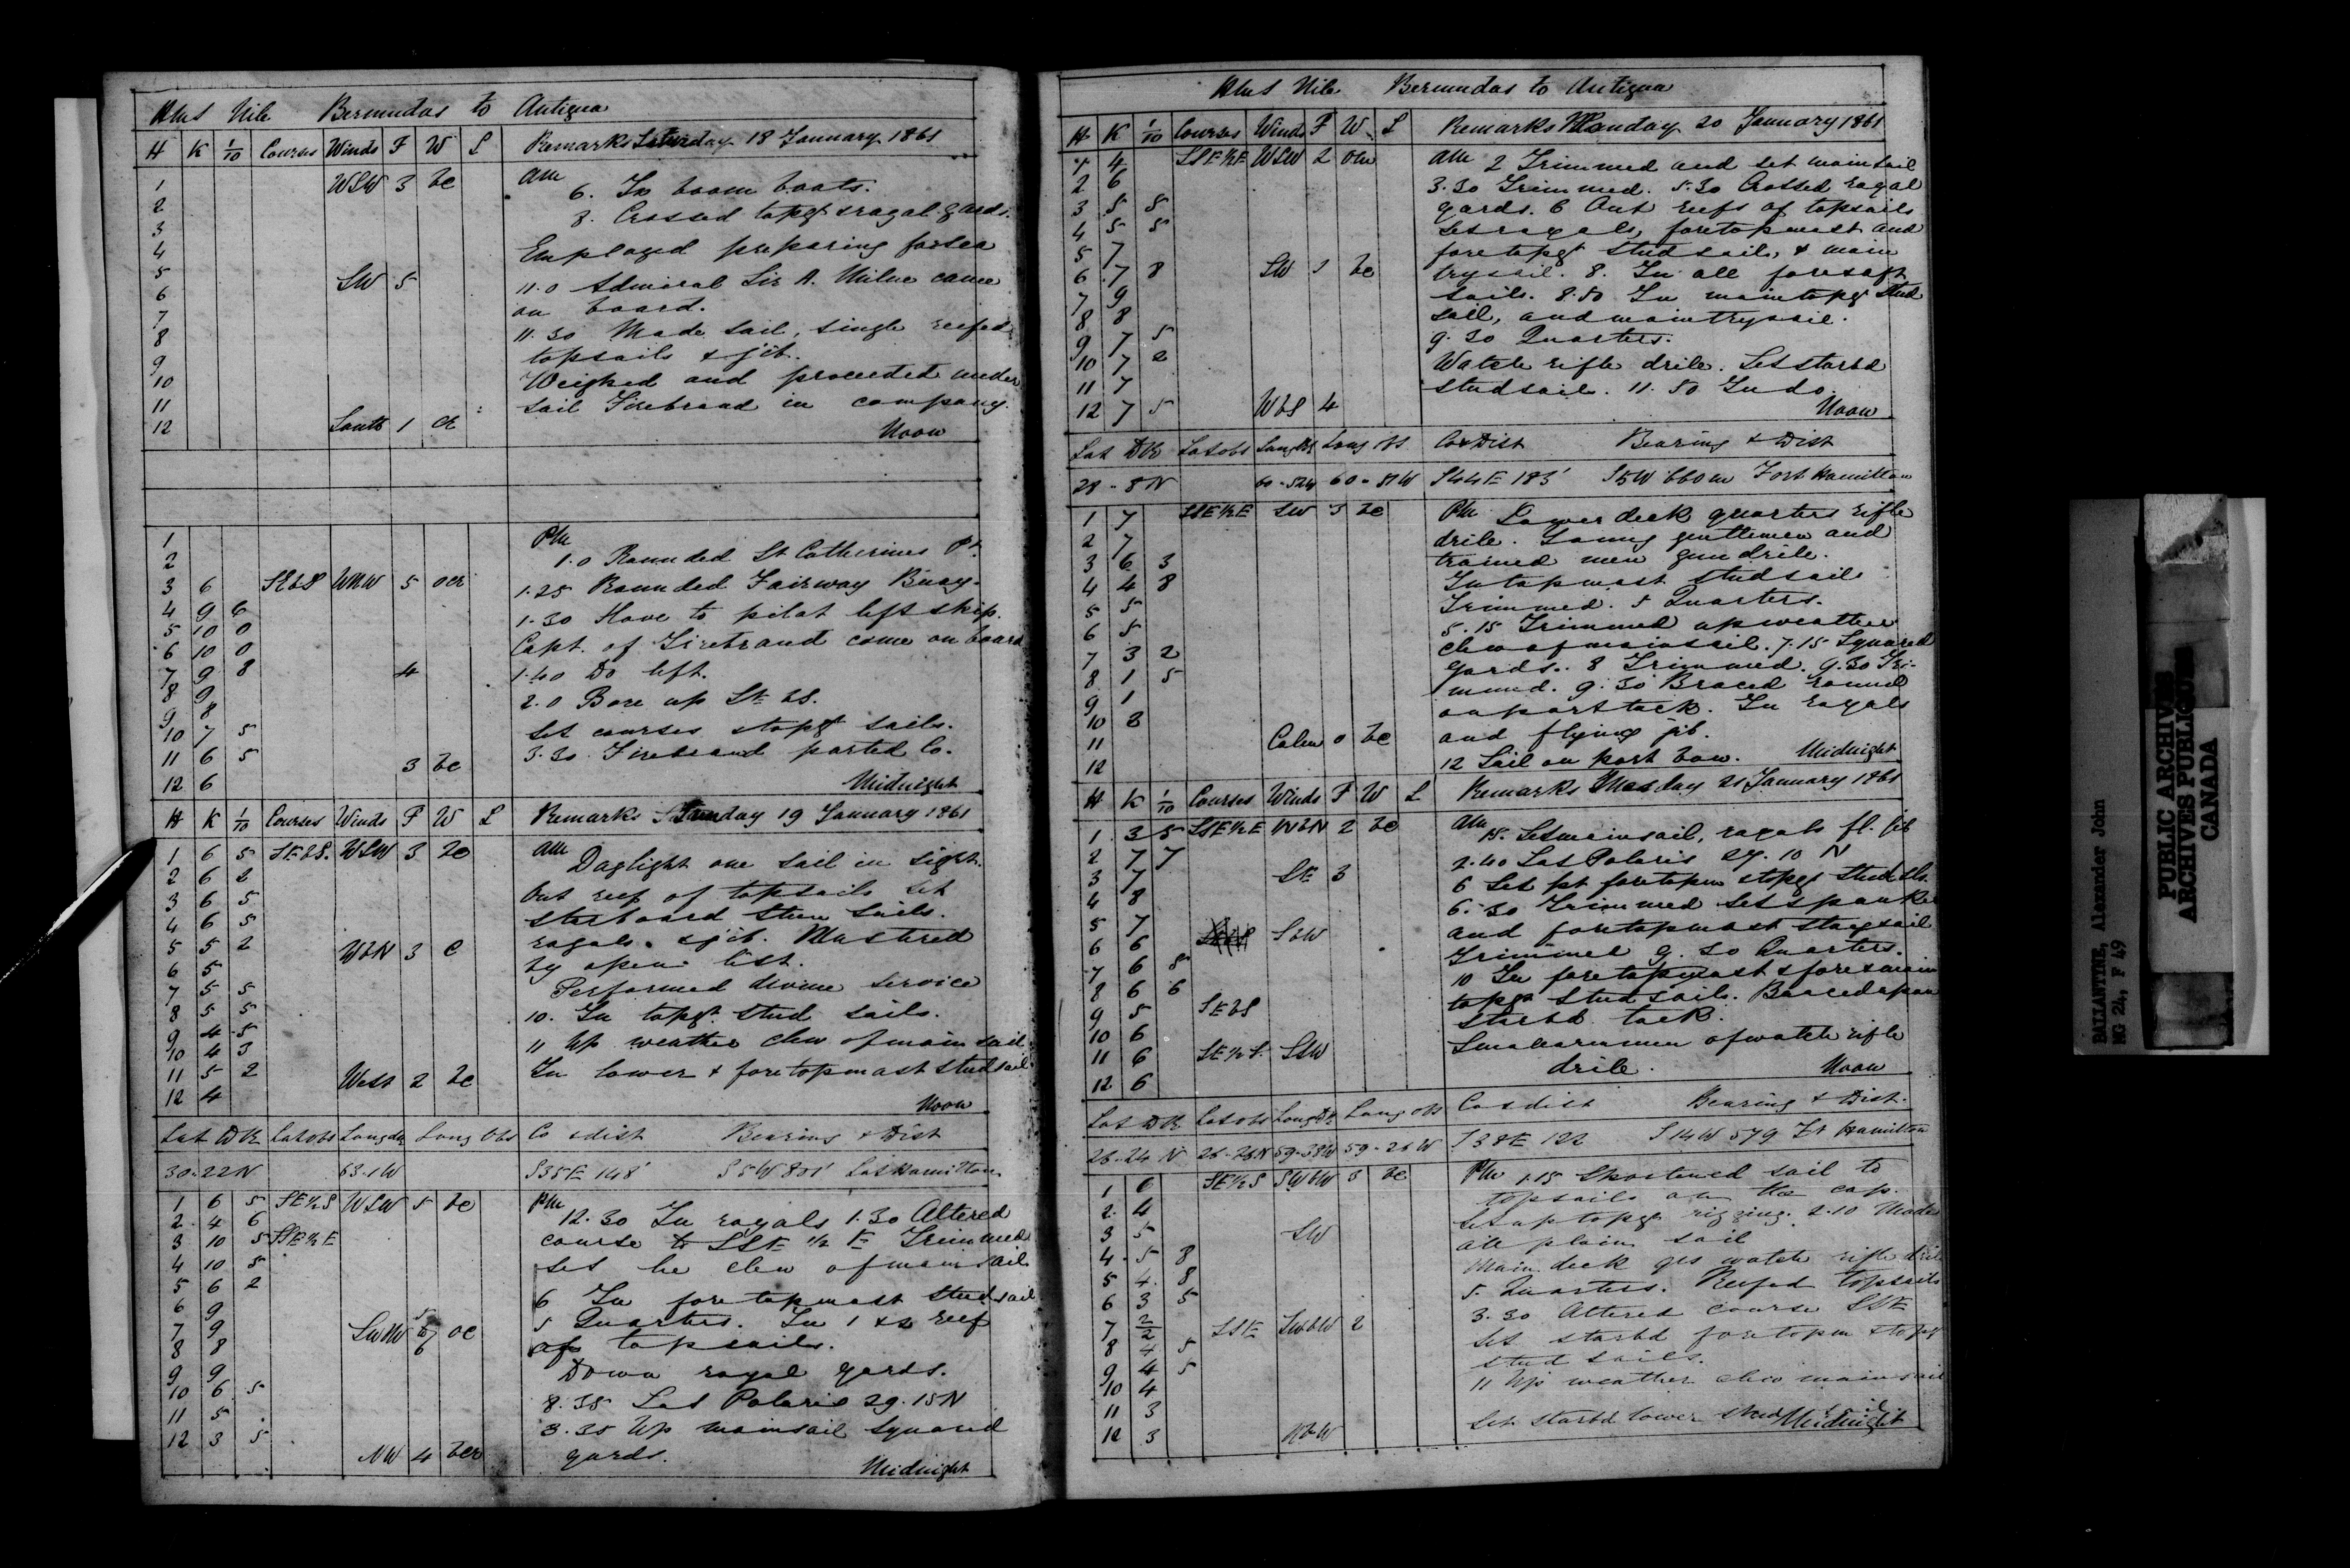 HMS Nile Bermudas to Antigua
H K 1/10 Courses Winds F W L Remarks Saturday 18 January 1861
1 WSW 3 bc AM
6. In boom boats.
2
8. Crossed topgt & royal yards.
3
4 Employed preparing for sea
5 SW 5 11.0 Admiral Sir A. Milne came
6 on board.
7 11.30 Made sail, single reefed
8 topsails & jib.
9 Weighed and proceeded under
10
11 sail Firebrand in company.
12 South 1 cr Noon
1 PM
2 1.0 Rounded St Catherines Pt.
3 6 SEbS WNW 5 ocr 1.25 Rounded Fairway Buoy.
4 9 6 1.30 Hove to pilot left ship.
5 10 0 Capt. of Firebrand came on board
6 10 0
7 9 8 4 1.40 Do left.
8 9 2.0 Bore up SEbS.
9 8 Set courses & topgt sails.
10 7 5
11 6 5 3 bc 3.30 Firebrand parted Co.
12 6 Midnight
H K 1/10 Courses Winds F W L Remarks Sunday 19 January 1861
1 6 5 SEbS. WSW 3 bc AM Daylight one sail in sight.
2 6 2 Out reef of topsails set
3 6 5 starboard stun sails.
4 6 5 royals & jib. Mustered
5 5 2 WbN 3 c by open list.
6 5
7 5 5 Performed divine service
8 5 5 10. In topgt stud sails.
9 4 5 11 Up weather clew of main sail
10 4 3
11 5 2 West 2 bc In lower & foretopmast studsail
12 4 Noon
Lat DR Lat obs Long dr Long Obs Co & dist Bearing & Dist
30-22N 63.1W S35E 148' S5W 801' Hamilton
1 6 5 SE½S WSW 5 bc PM 12.30 In royals 1.30 Altered
2 4 6 course to SSE ½ E Trimmed
3 10 5 SSE½E
4 10 5 Set lee clew of mainsail
5 6 2 6 In foretopmast studsail
6 9 5 Quarters. In 1 & 2 reef
7 9 oc of topsails.
8 8 Down royal yards.
9 9
10 6 5 8.35 Lat Polaris 29.15N
11 5 3.35 Up mainsail squared
12 3 5 NW 4 bcr yards. Midnight
HMS Nile Bermudas to Antigua
H K 1/10 Courses Winds F W L Remarks Monday 20 January 1861
1 4 SSE½E WSW 2 om AM 2 Trimmed and set mainsail
2 6 3.30 Trimmed. 5.30 Crossed royal
3 5 8 yards. 6 Out reefs of topsails
4 5 5 set royals, foretopmast and
5 7 foretopgt studsails, & main
6 7 8 SW 3 bc trysail. 8. In all fore & aft
7 9 sails. 8.50 In maintopgt stud
8 8 sail, and maintrysail.
9 7 5 9.30 Quarters.
10 7 2 Watch rifle drill. Set starbd
11 7 studsail. 11.50 In do.
12 7 5 WbS 4 Noon
Lat DR Lat obs Long DR Long obs Co & Dist Bearing & Dist
28-8N 60-52W 60-51W S44E 183' S5W 660m Fort Hamilton
1 7 SSE½E SW 3 bc PM Lower deck quarters rifle
2 7 drill. Young gentlemen and
3 6 3 trained men gun drill.
4 4 8 In topmast studsail
5 5 Trimmed. 5 Quarters.
6 5 5.15 Trimmed up weather
7 3 2 clew of mainsail. 7.15 Squared
8 1 5 yards. 8 Trimmed. 9.30 Tri-
9 1 mmed. 9.30 Braced round
10 3 on port tack. In royals
11 Calm 0 bc and flying jib.
12 12 Sail on port bow. Midnight
H K 1/10 Courses Winds F W L Remarks Tuesday 21 January 1861
1 3 5 SSE½E WbN 2 bc AM 15. Set mainsail, royals fl. jib
2 7 7 2.40 Lat Polaris 27.10 N
3 7 SE 3 6 Set pt foretopm & topgt stud sls.
4 8 6.30 Trimmed set spanker
5 7 SbW and foretopmast staysail
6 6 Trimmed 9.30 Quarters.
7 6 8 10 In foretopmast & fore & main
8 6 6 topgt studsails. Braced upon
9 5 SEbS starbd tack.
10 6 Smallarmmen of watch rifle
11 6 SE½S. SSW drill. Noon
12 6
Lat DR Lat obs Long DR Long obs Co & dist Bearing & Dist.
26-24 N 26-26N 59-38W 59-26W S38E 122 S14W 579 Ft Hamilton
1 6 SE½S SWbW 3 bc PM 1.15 Shortened sail to
2 4 topsails on the cap.
3 5 SW Set up topgt rigging. 2.10 Made
4 5 8 all plain sail
5 4 8 Main deck qrs watch rifle drill
6 3 5 5. Quarters. Reefed topsails
7 2/2 SSE SWbW 2 3.30 Altered course SSE
8 4 5 Set starbd foretopm & topgt
9 4 5 stud sails.
10 4 11 Up weather clew mainsail
11 3 Set starbd lower stud sail.
12 3 Midnight
BALLANTYNE, Alexander John
MG 24, F 49
PUBLIC ARCHIVES
ARCHIVES PUBLIQUES
CANADA